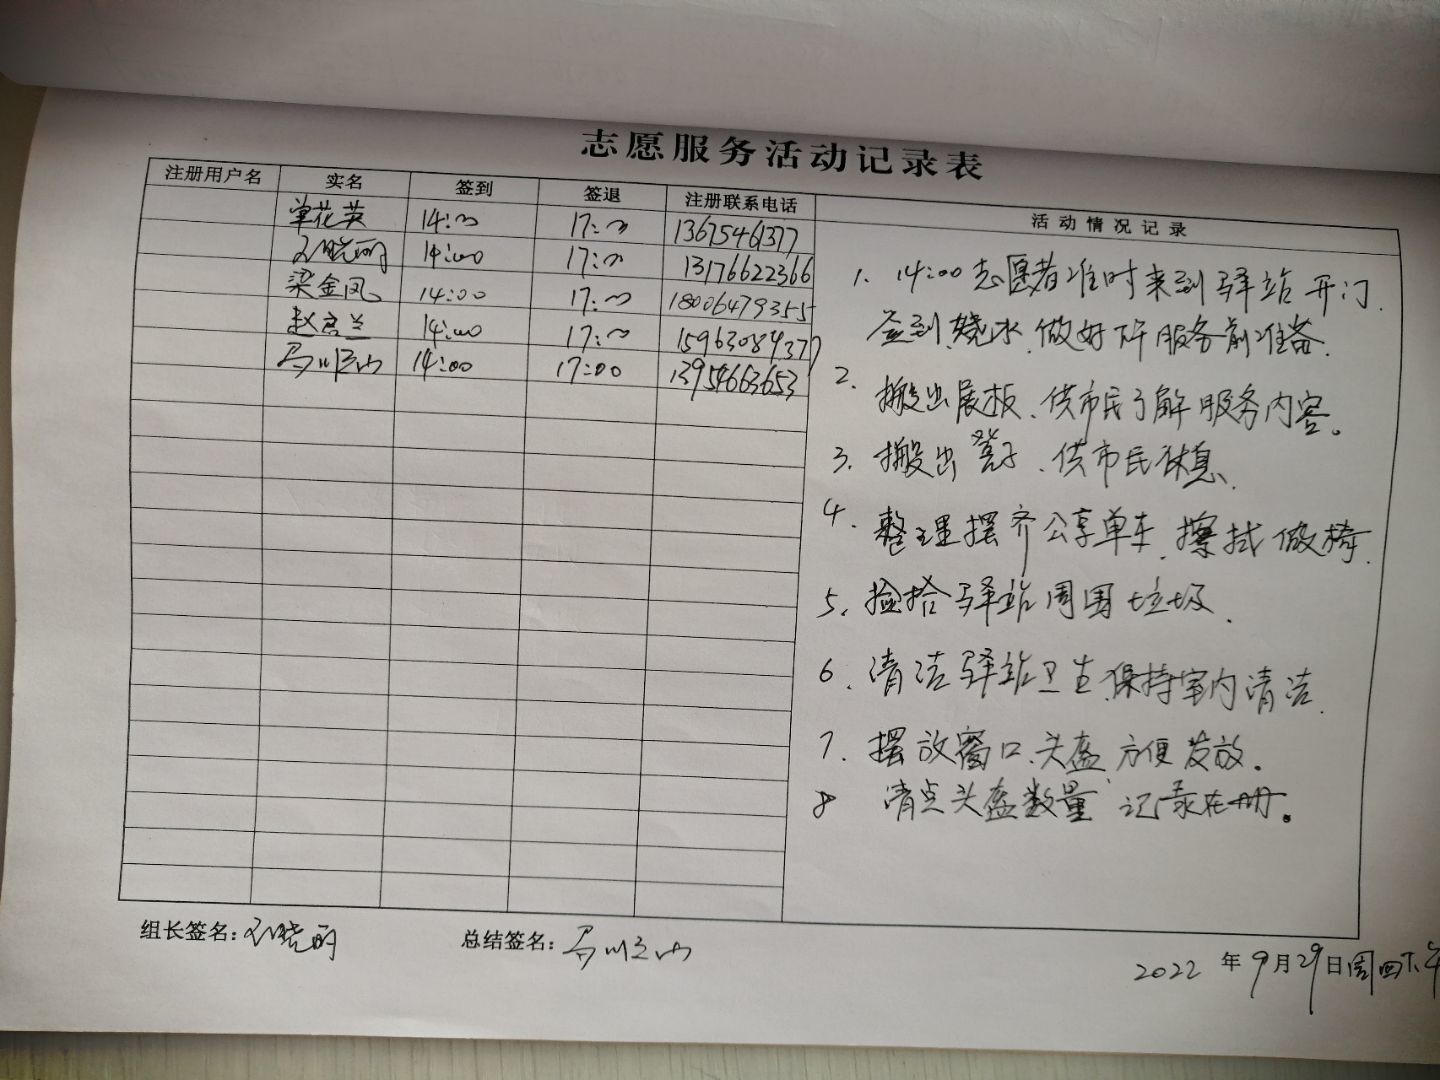 志愿服务活动记录表
注册用户名 实名 签到 签退 注册联系电话 活动情况记录
单花英 14:00 17:00 13675461377
晓丽 14:00 17:00 13176622366
梁金凤 14:00 17:00 18006479355
赵 兰 14:00 17:00 15963084377
14:00 17:00 13954663653
1. 14:00志愿者准时来到驿站开门.
签到、烧水、做好开服务前准备.
2. 搬出展板、供市民了解服务内容。
3. 搬出凳子、供市民休息.
4. 整理摆齐公享单车.擦拭做椅.
5. 捡拾驿站周围垃圾.
6. 清洁驿站卫生.保持室内清洁.
7. 摆放窗口、头盔,方便发放.
8 清点头盔数量 记录在册。
组长签名: 晓丽 总结签名:
2022 年9月29日周四下午